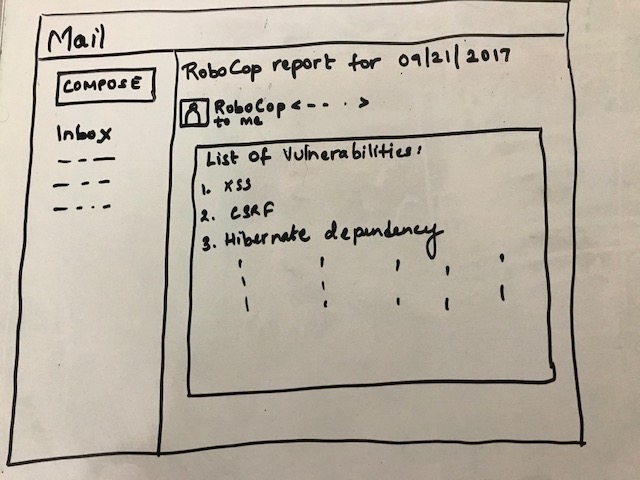 Mail
COMPOSE
Inbox
RoboCop report for 09/21/2017
RoboCop <--..>
to me
List of Vulnerabilities:
1. XSS
2. CSRF
3. Hibernate dependency